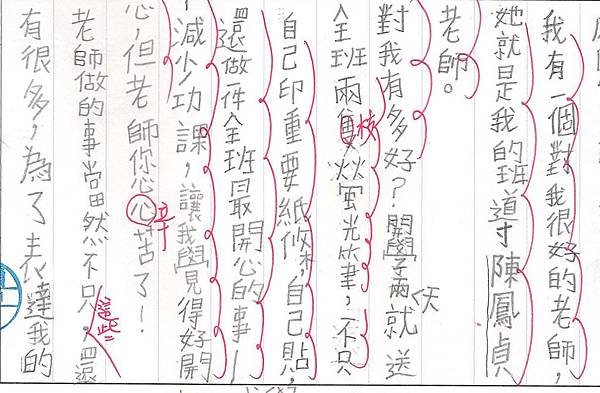 我有一個對我很好的老師，
她就是我的班導陳鳳貞
老師。
對我有多好？開學兩天就送
全班兩隻螢光筆，不只
枝
自己印重要紙條，自己貼，
還做一件全班最開心的事—
減少功課，讓我覺得好開
心，但老師您心苦了！
辛
老師做的事當然不只這些，還
有很多，為了表達我的